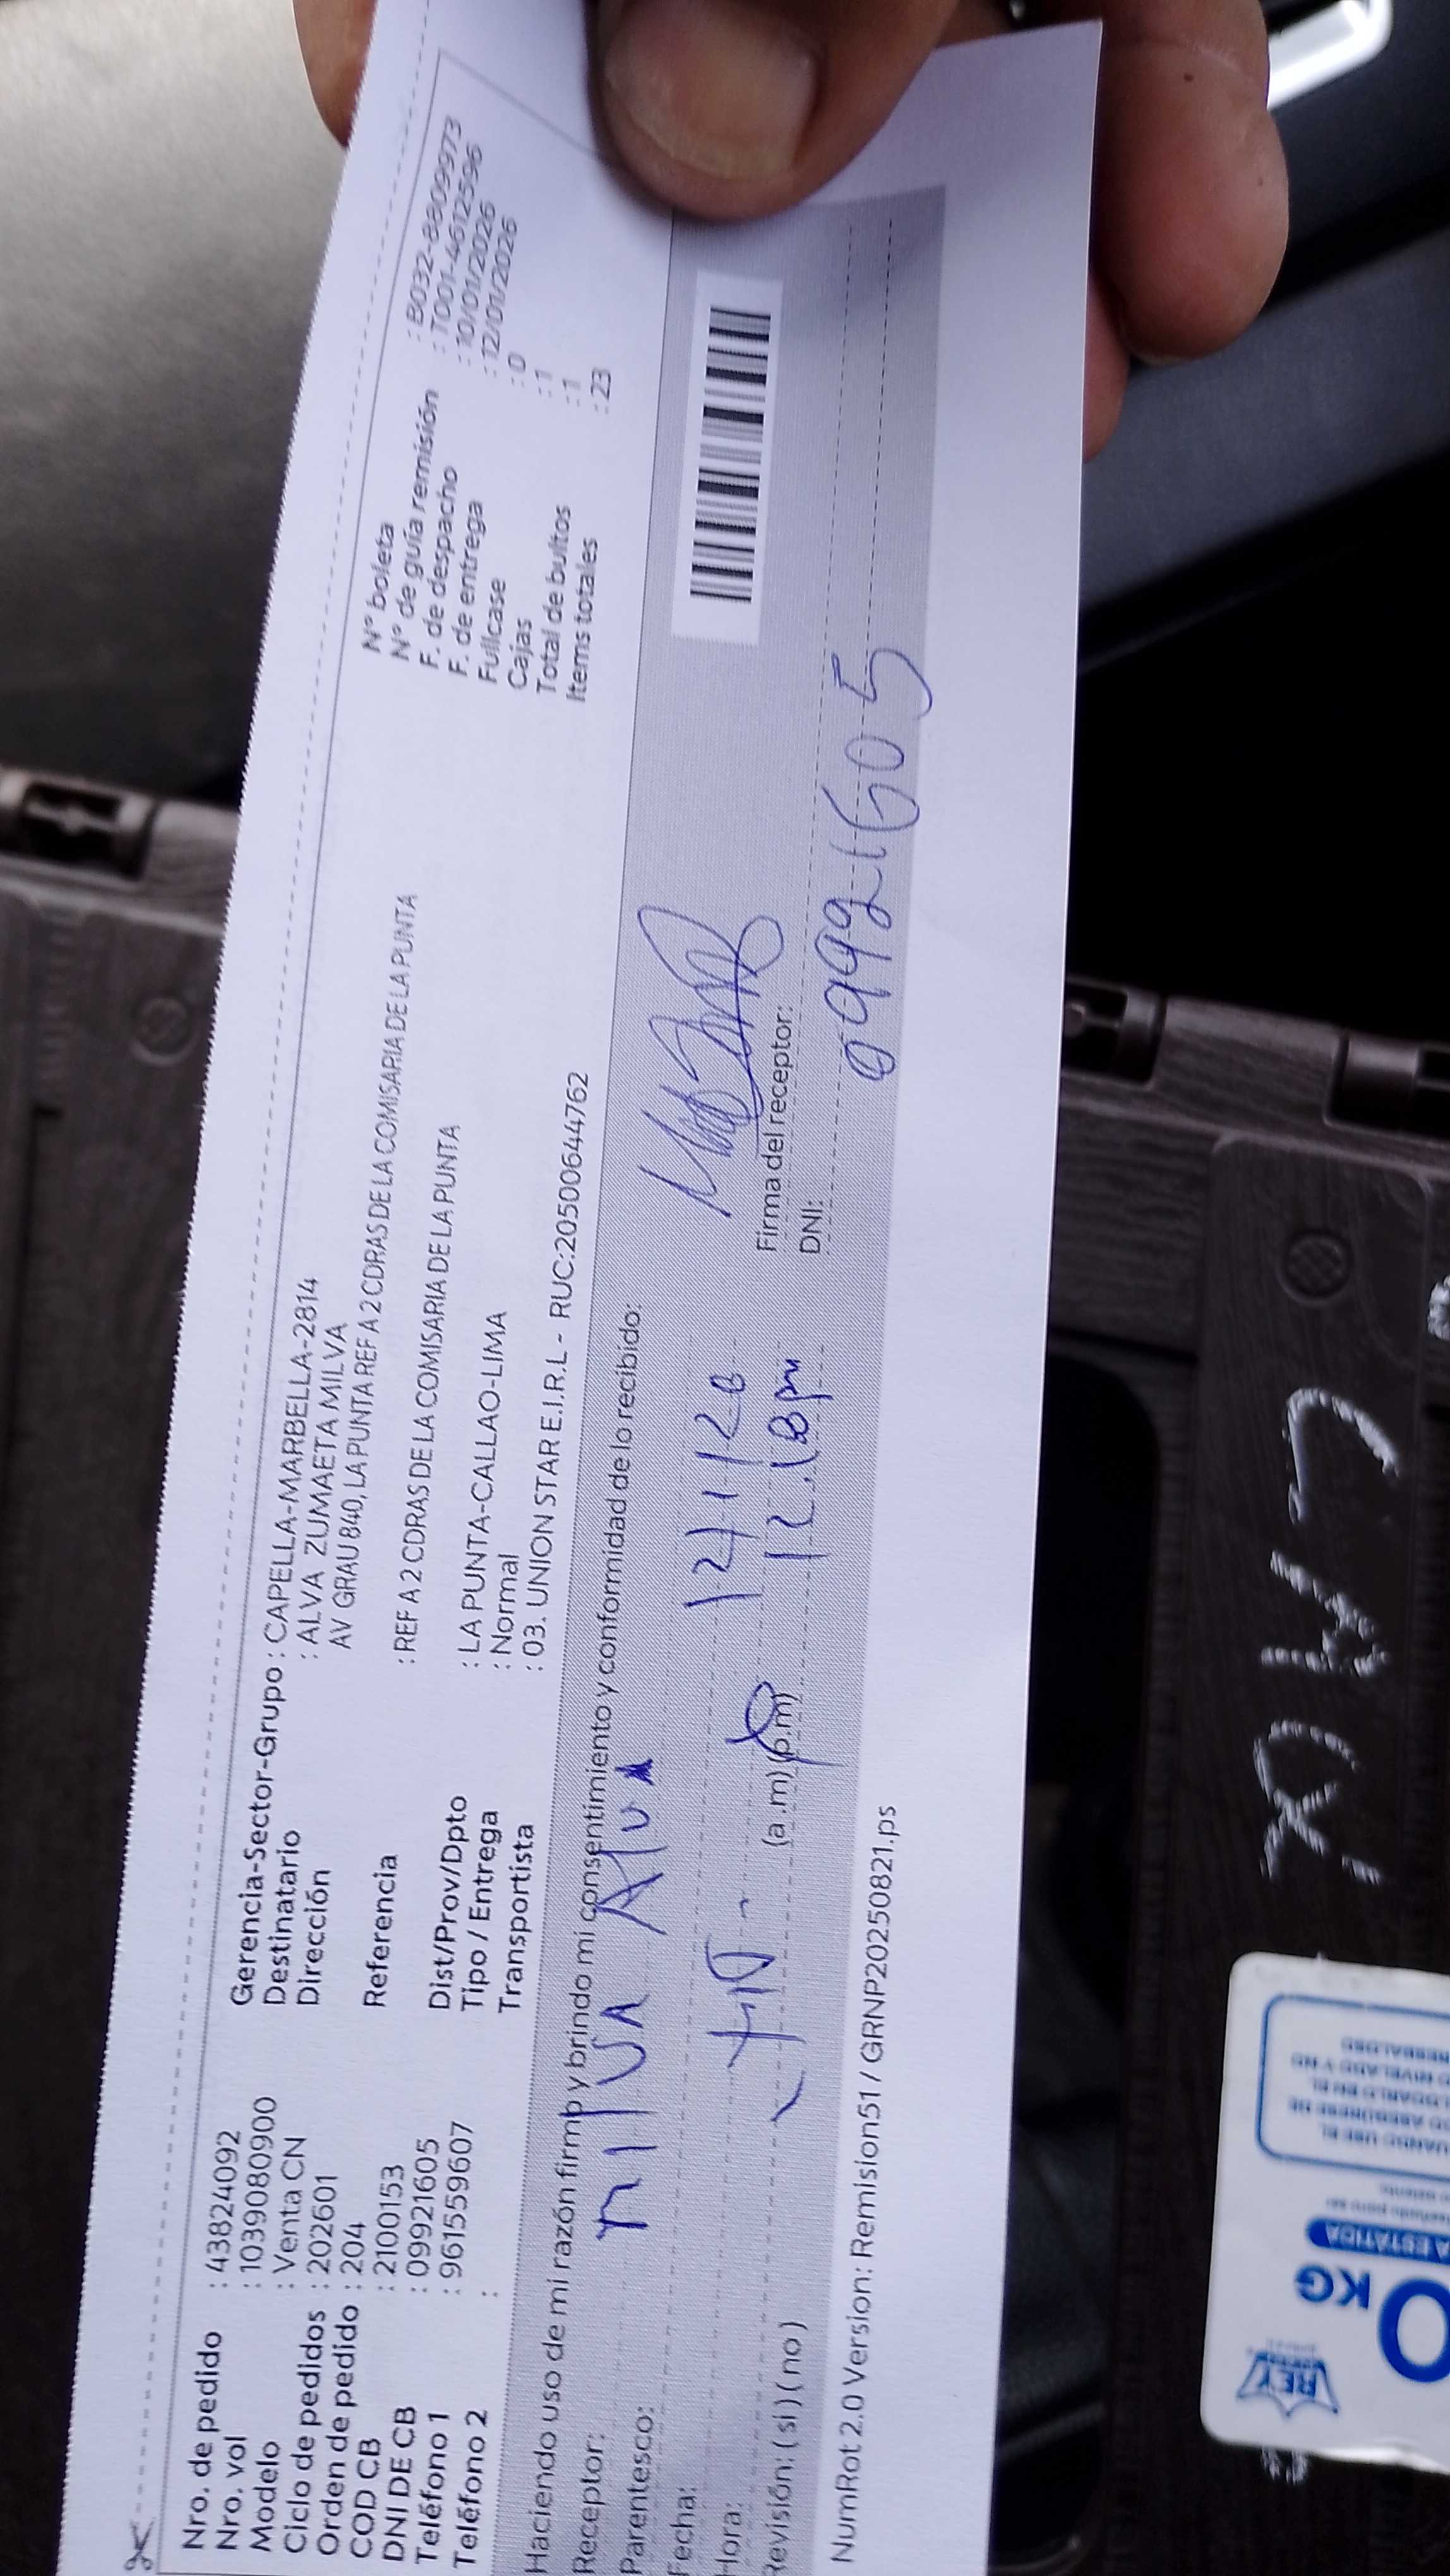 Nro. de pedido : 43824092
Nro. vol : 1039080900
Modelo : Venta CN
Ciclo de pedidos : 202601
Orden de pedido : 204
COD CB : 2100153
DNI DE CB : 09921605
Teléfono 1 : 961559607
Teléfono 2 :
Gerencia-Sector-Grupo : CAPELLA-MARBELLA-2814
Destinatario : ALVA ZUMAETA MILVA
Dirección AV GRAU 840, LA PUNTA REF A 2 CDRAS DE LA COMISARIA DE LA PUNTA
Referencia : REF A 2 CDRAS DE LA COMISARIA DE LA PUNTA
Dist/Prov/Dpto : LA PUNTA-CALLAO-LIMA
Tipo / Entrega : Normal
Transportista : 03. UNION STAR E.I.R.L - RUC:20500644762
N° boleta : B032-88099973
N° de guía remisión : T001-46125596
F. de despacho : 10/01/2026
F. de entrega : 12/01/2026
Fullcase : 0
Cajas : 1
Total de bultos : 1
Items totales : 23
Haciendo uso de mi razón firmo y brindo mi consentimiento y conformidad de lo recibido:
Receptor: MILVA ALVA
Parentesco:
Fecha: 12/1/26
Hora: (a.m) (p.m) 12.18pm
Revisión: ( si ) ( no )
Firma del receptor:
DNI: 09921605
NumRot 2.0 Version: Remision51 / GRNP20250821.ps
REY
0 KG
A ESTÁTICA